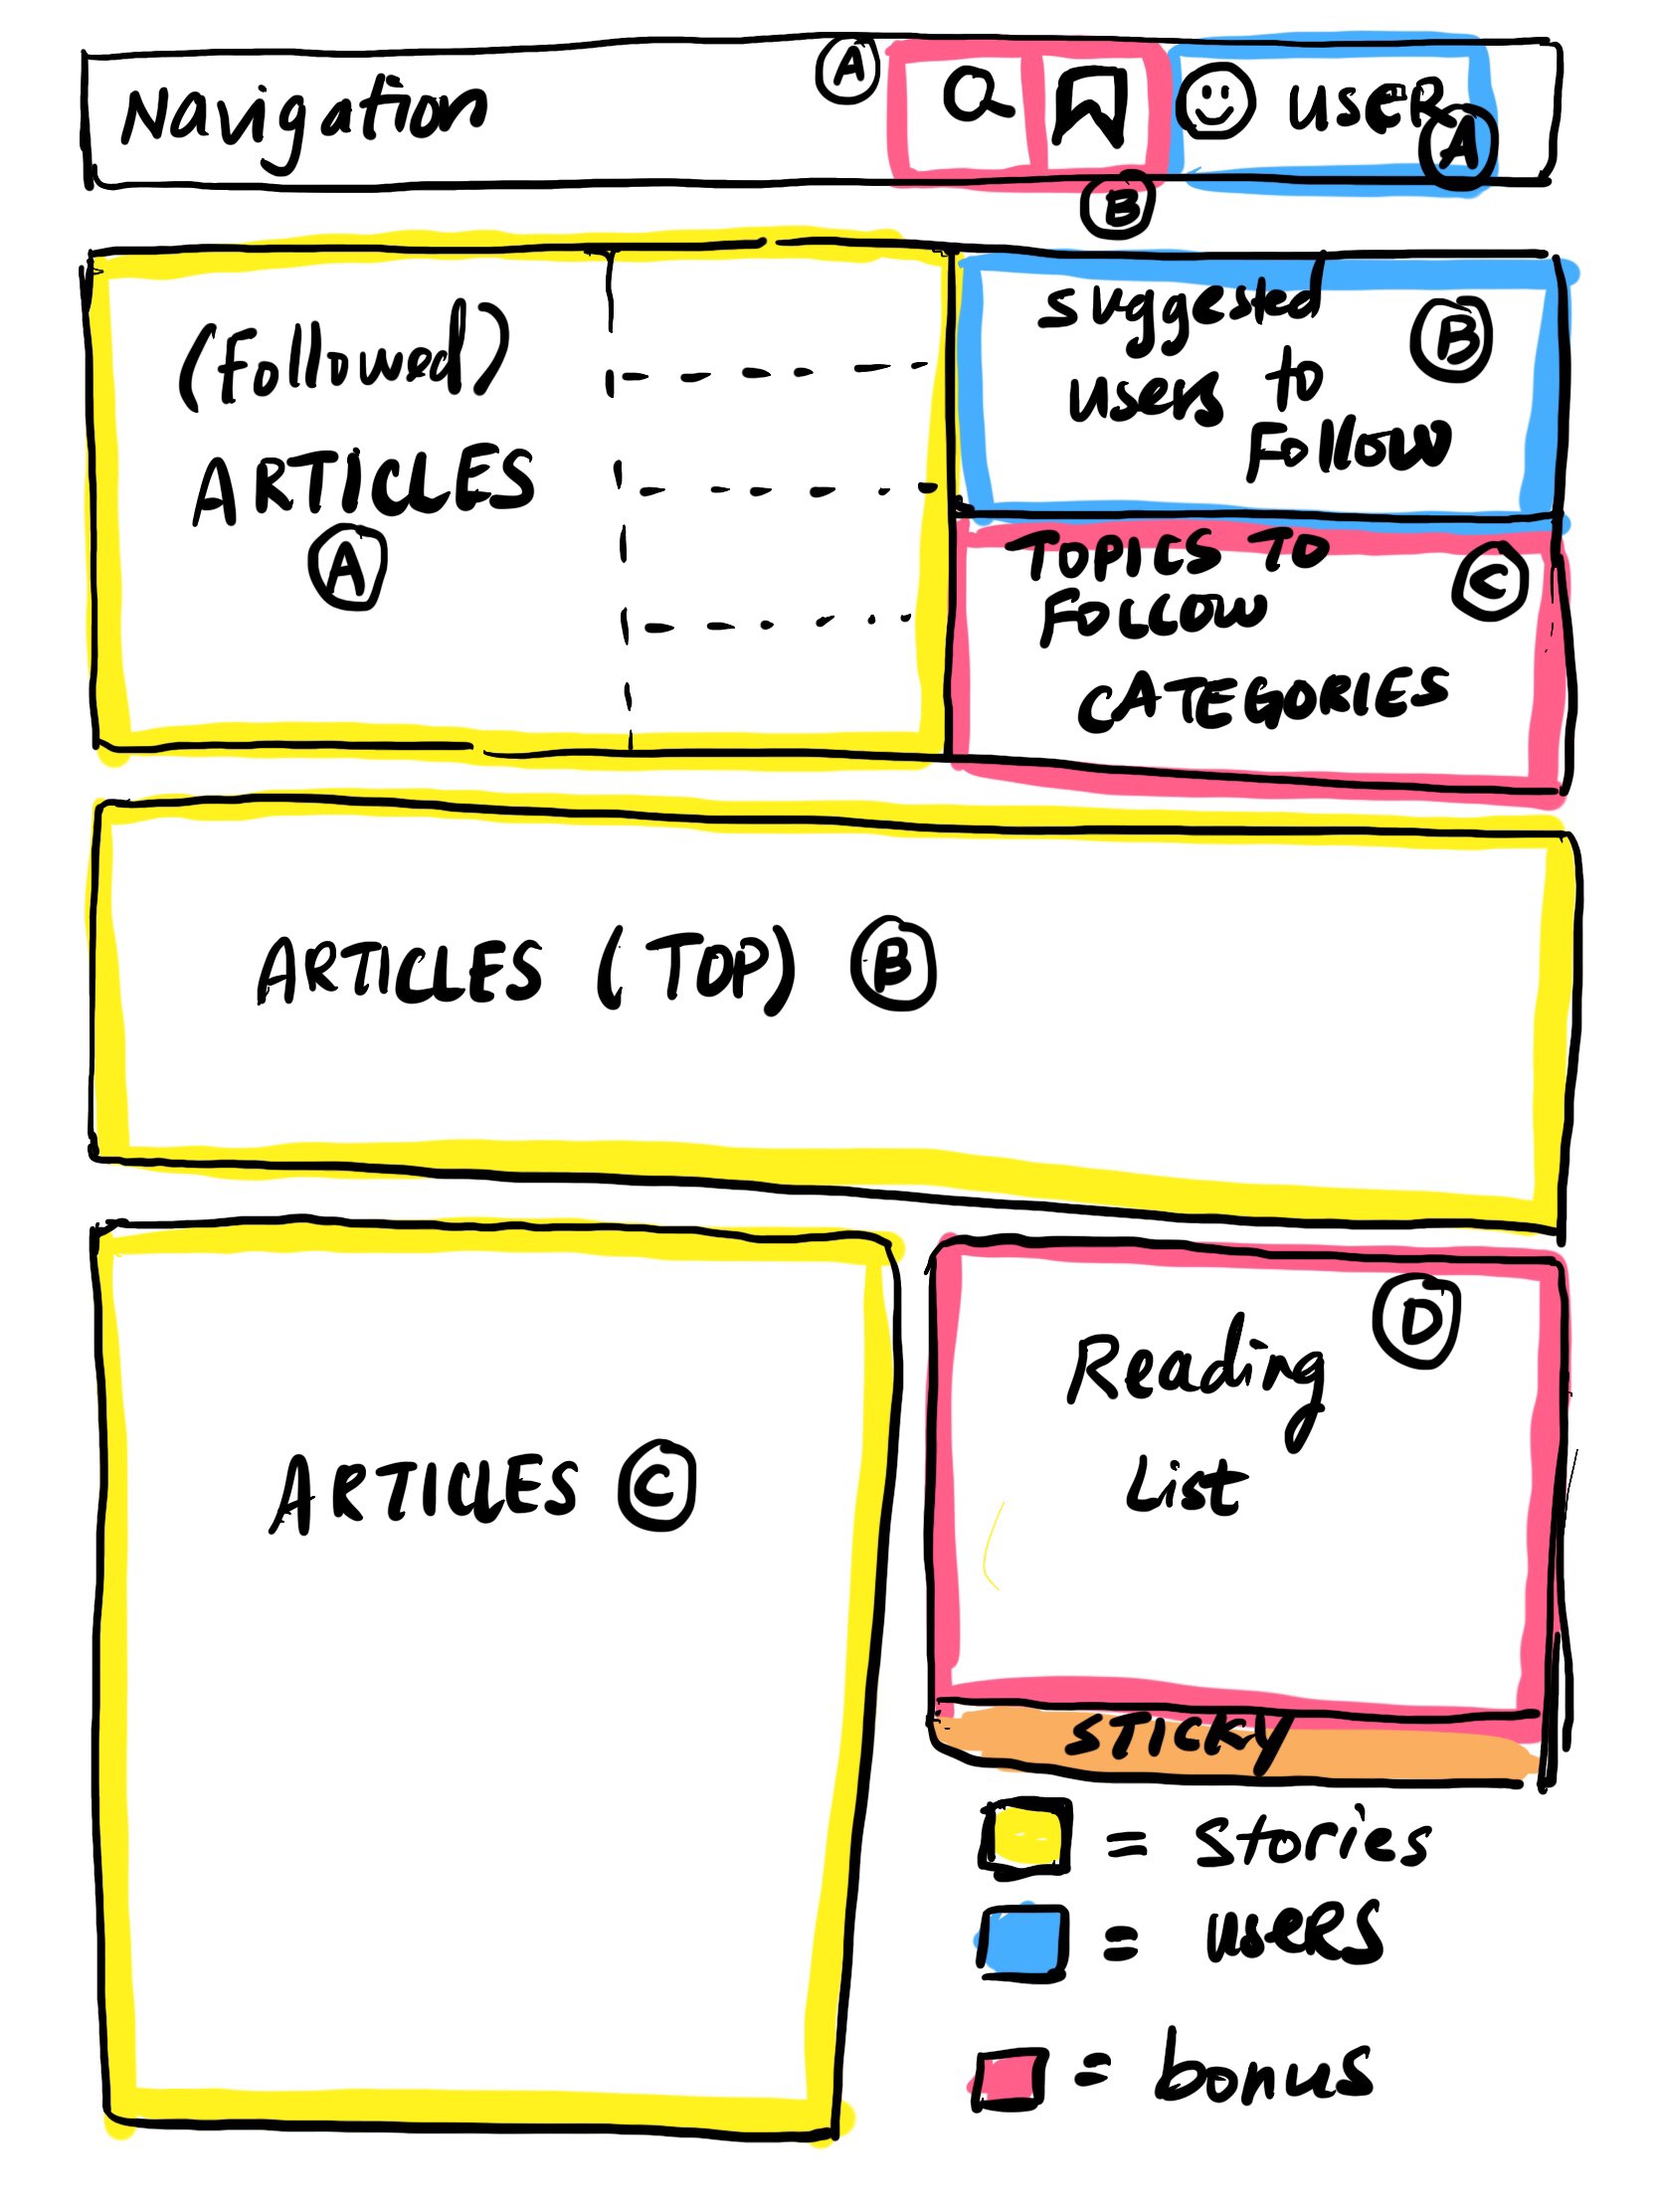 Navigation
A
user
A
B
(Followed)
ARTICLES
A
suggested
users to
Follow
B
TOPICS TO
FOLLOW
CATEGORIES
C
ARTICLES (TOP) B
ARTICLES C
Reading
List
D
STICKY
= stories
= users
= bonus